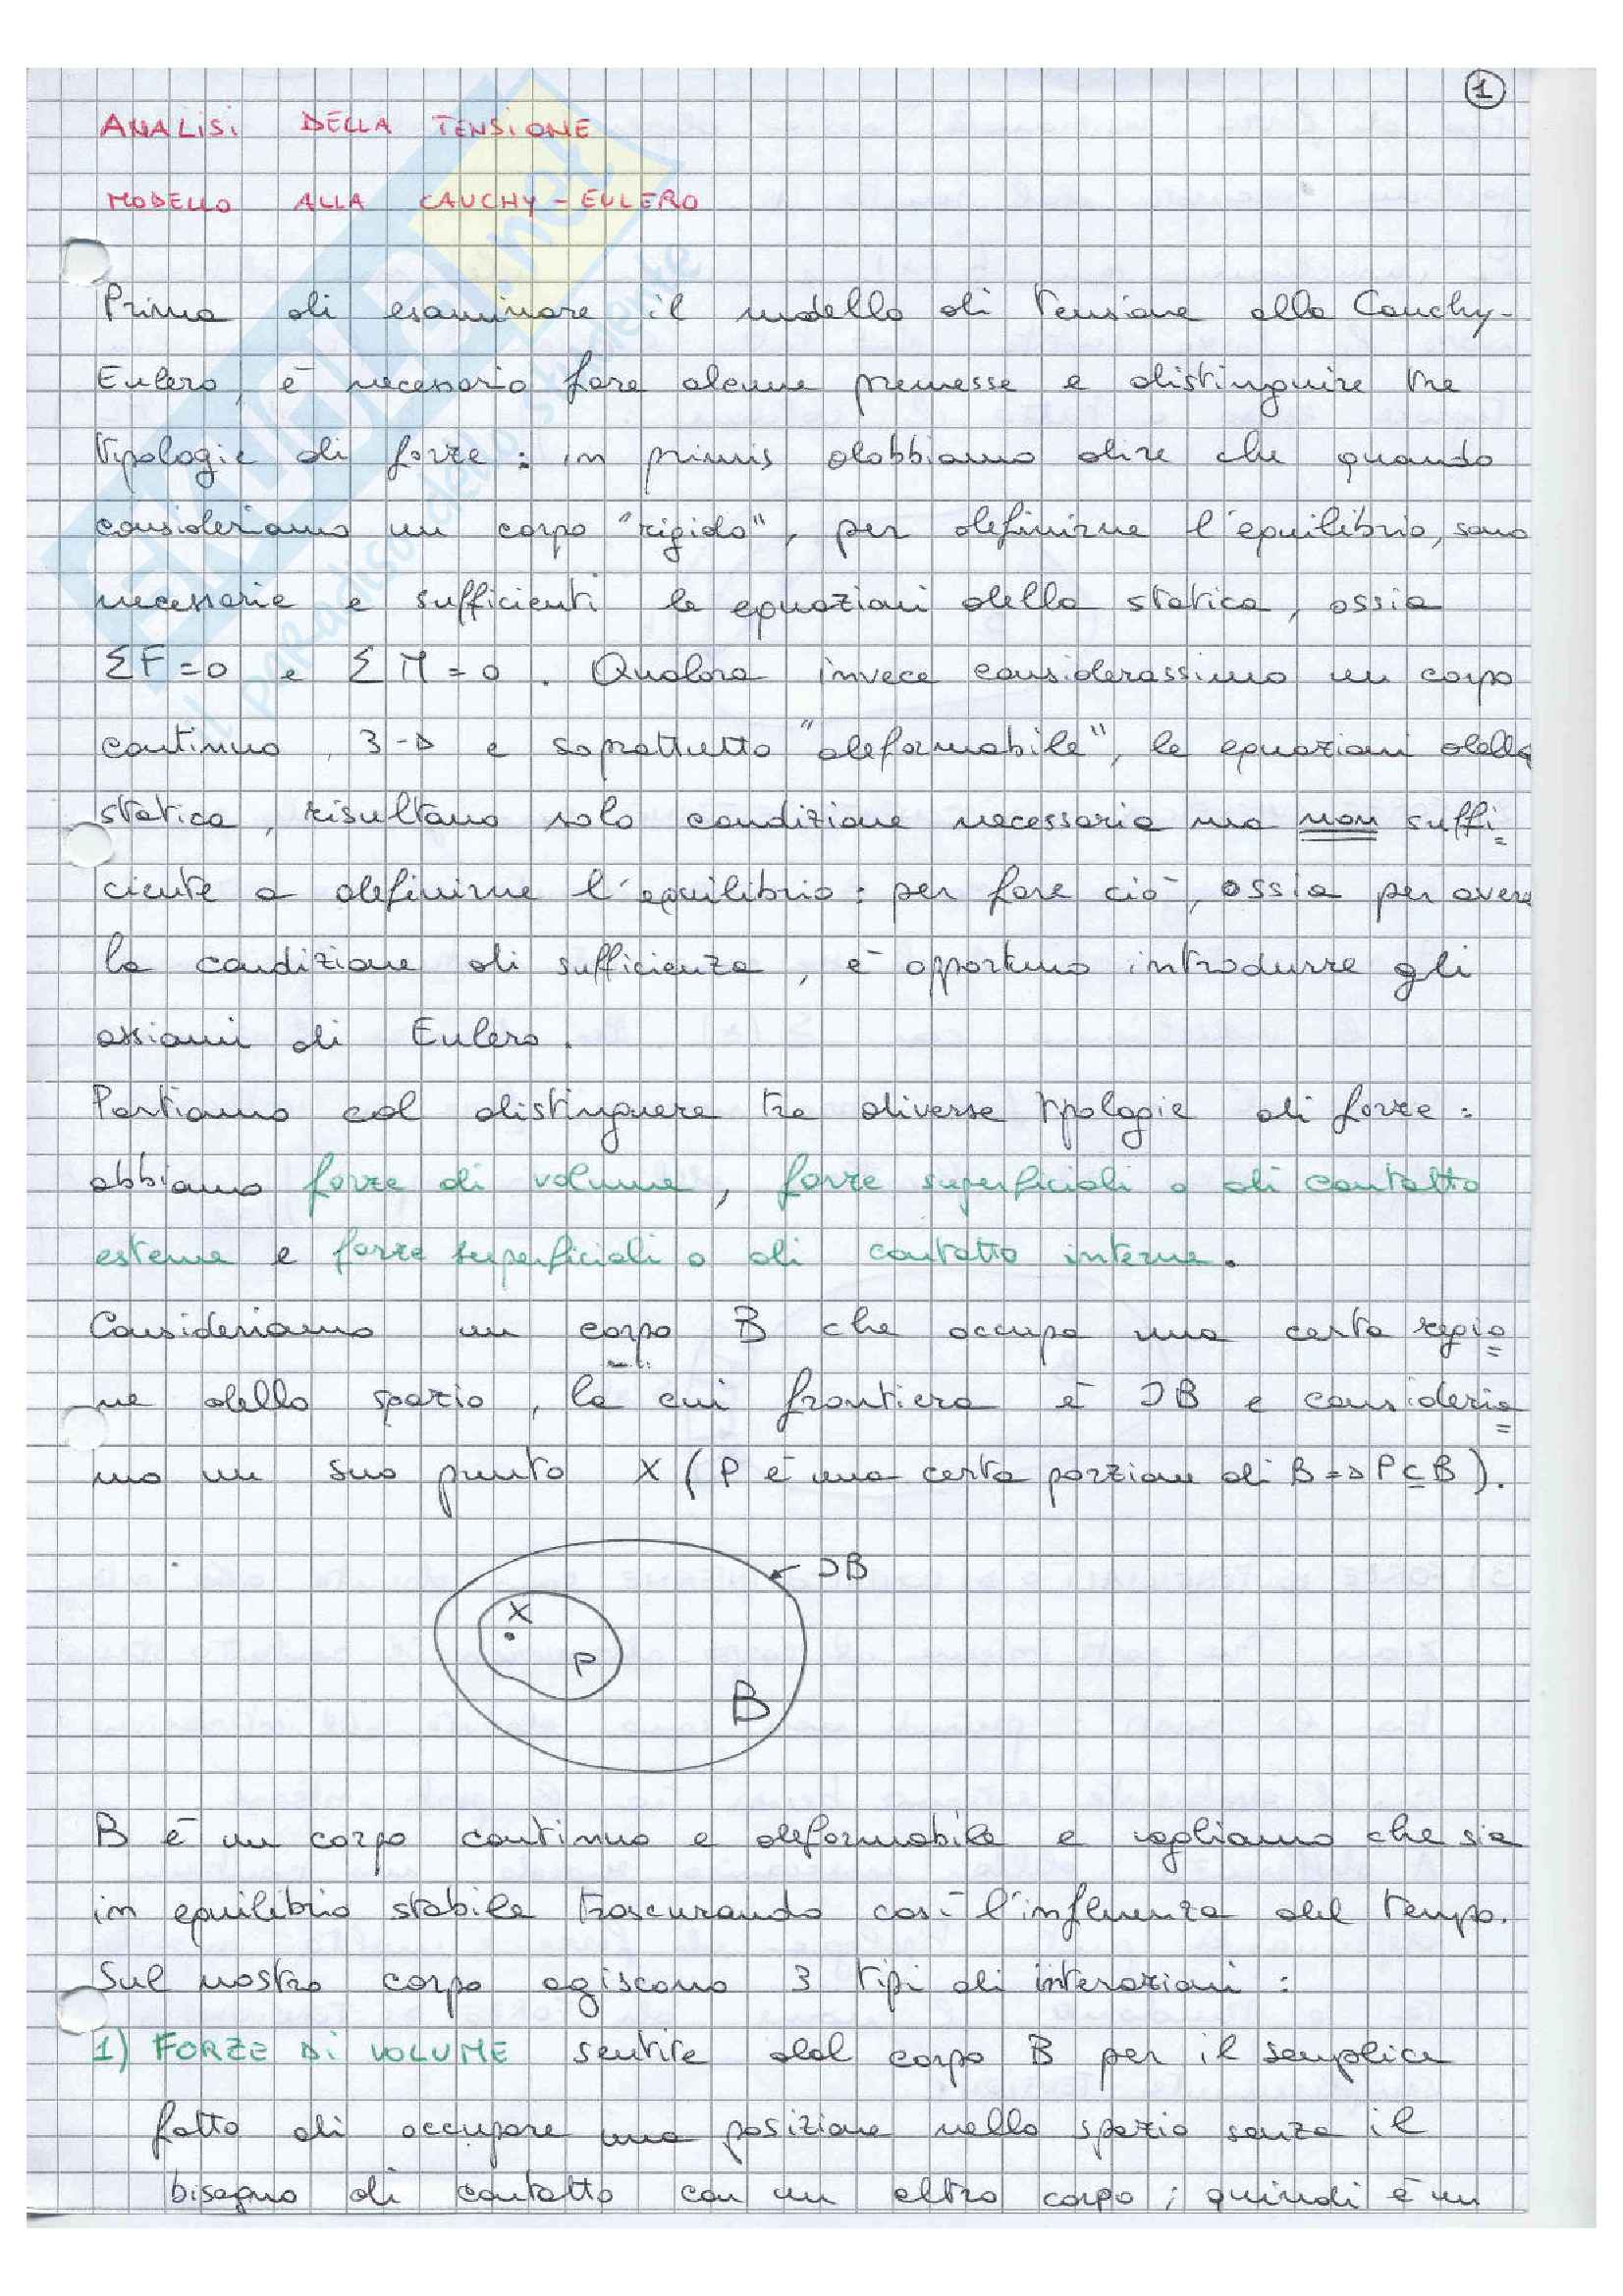 1
ANALISI DELLA TENSIONE
MODELLO ALLA CAUCHY-EULERO
Prima di esaminare il modello di tensione alla Cauchy-
Eulero, è necessario fare alcune premesse e distinguire tre
tipologie di forze: in primis dobbiamo dire che quando
consideriamo un corpo "rigido", per definirne l'equilibrio, sono
necessarie e sufficienti le equazioni della statica, ossia
ΣF=0 e ΣM=0. Qualora invece considerassimo un corpo
continuo, 3-D e soprattutto "deformabile", le equazioni della
statica, risultano solo condizione necessaria ma non suffi=
ciente a definirne l'equilibrio: per fare ciò, ossia per avere
la condizione di sufficienza, è opportuno introdurre gli
assiomi di Eulero.
Partiamo col distinguere tre diverse tipologie di forze:
abbiamo forze di volume, forze superficiali o di contatto
esterne e forze superficiali o di contatto interne.
Consideriamo un corpo B che occupa una certa regio=
ne dello spazio, la cui frontiera è ∂B e consideria=
mo un suo punto X (P è una certa porzione di B => P⊆B).
∂B
X
P
B
B è un corpo continuo e deformabile e vogliamo che sia
in equilibrio stabile trascurando così l'influenza del tempo.
Sul nostro corpo agiscono 3 tipi di interazioni:
1) FORZE DI VOLUME sentite dal corpo B per il semplice
fatto di occupare una posizione nello spazio senza il
bisogno di contatto con un altro corpo; quindi è un
SKUOLA.net
il paradiso dello studente